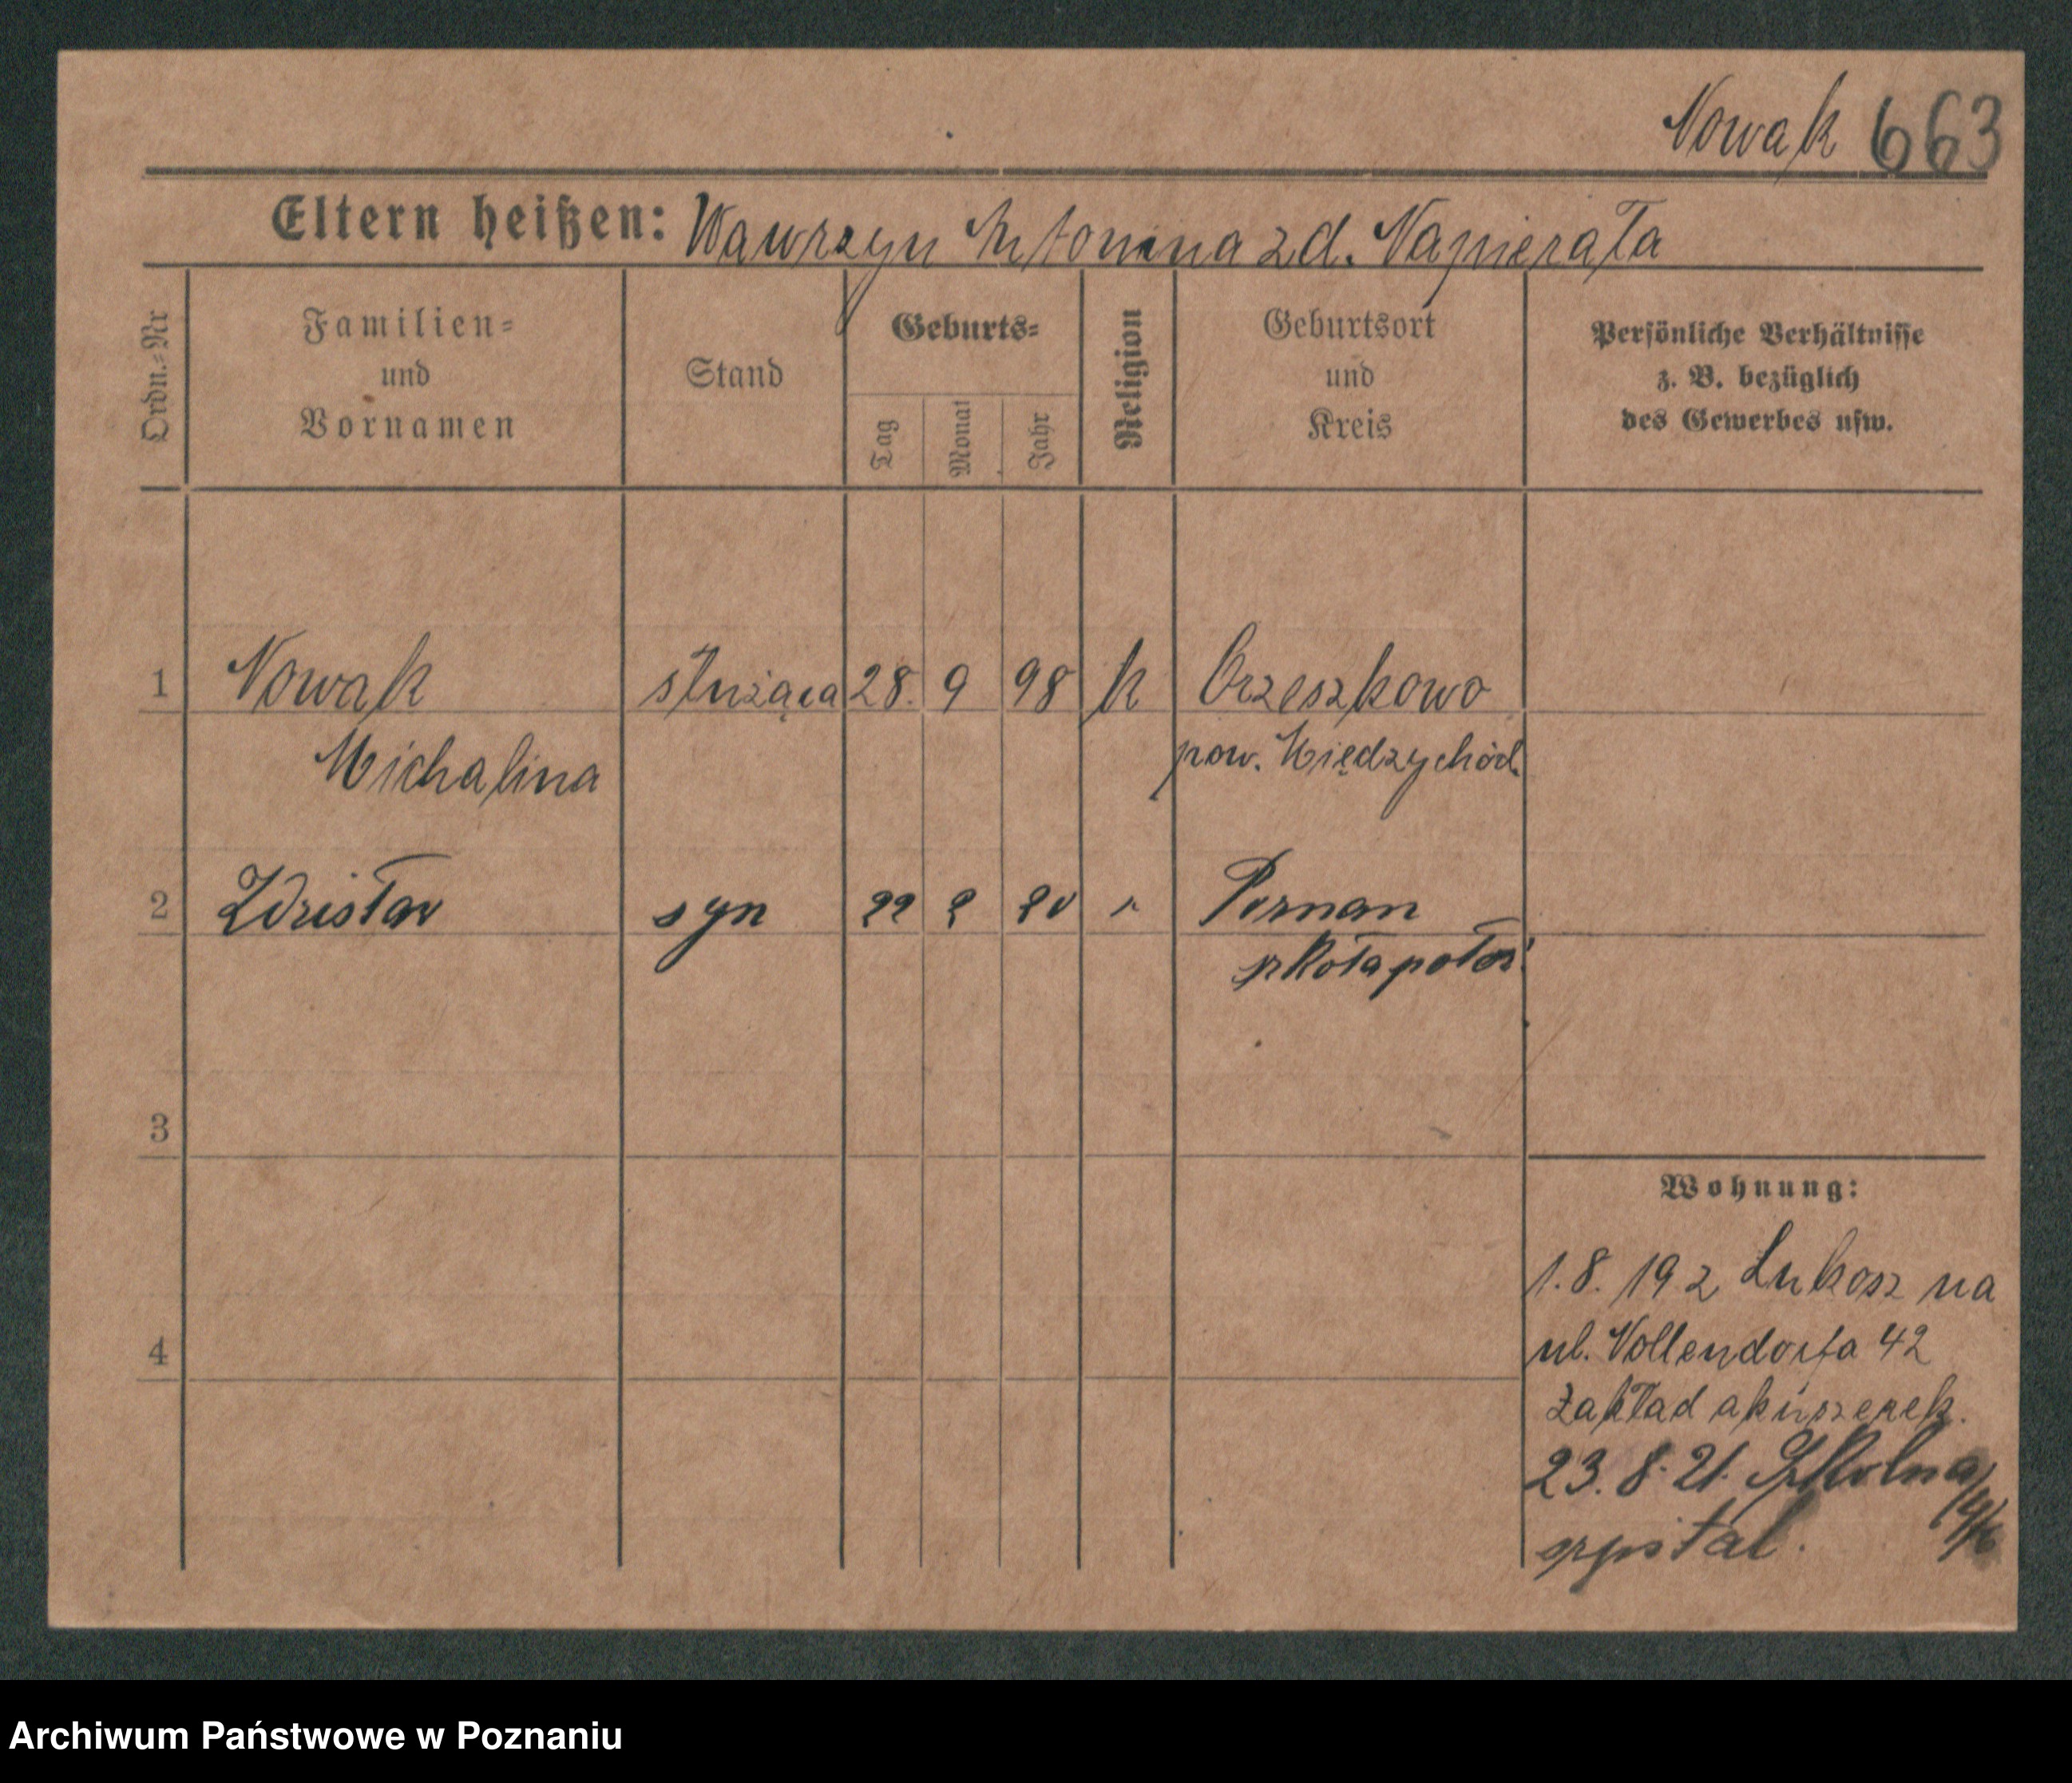 Nowak 663
Eltern heißen: Wawrzyn Antonina zd. Napierała
Ordn.-Nr
Familien-
und
Vornamen
Stand
Geburts-
Tag
Monat
Jahr
Religion
Geburtsort
und
Kreis
Persönliche Verhältnisse
z. B. bezüglich
des Gewerbes usw.
1 Nowak służąca 28. 9 98 k Orzeszkowo
Michalina pow. Międzychód
2 syn 22 2 20 " Poznan
szkoła położ
3
4
Wohnung:
1.8. 192 Łukosz na
ul. Vollendorfa 42
Zakład akuszerek.
23. 8. 21. Szkolna
szpital.
Archiwum Państwowe w Poznaniu